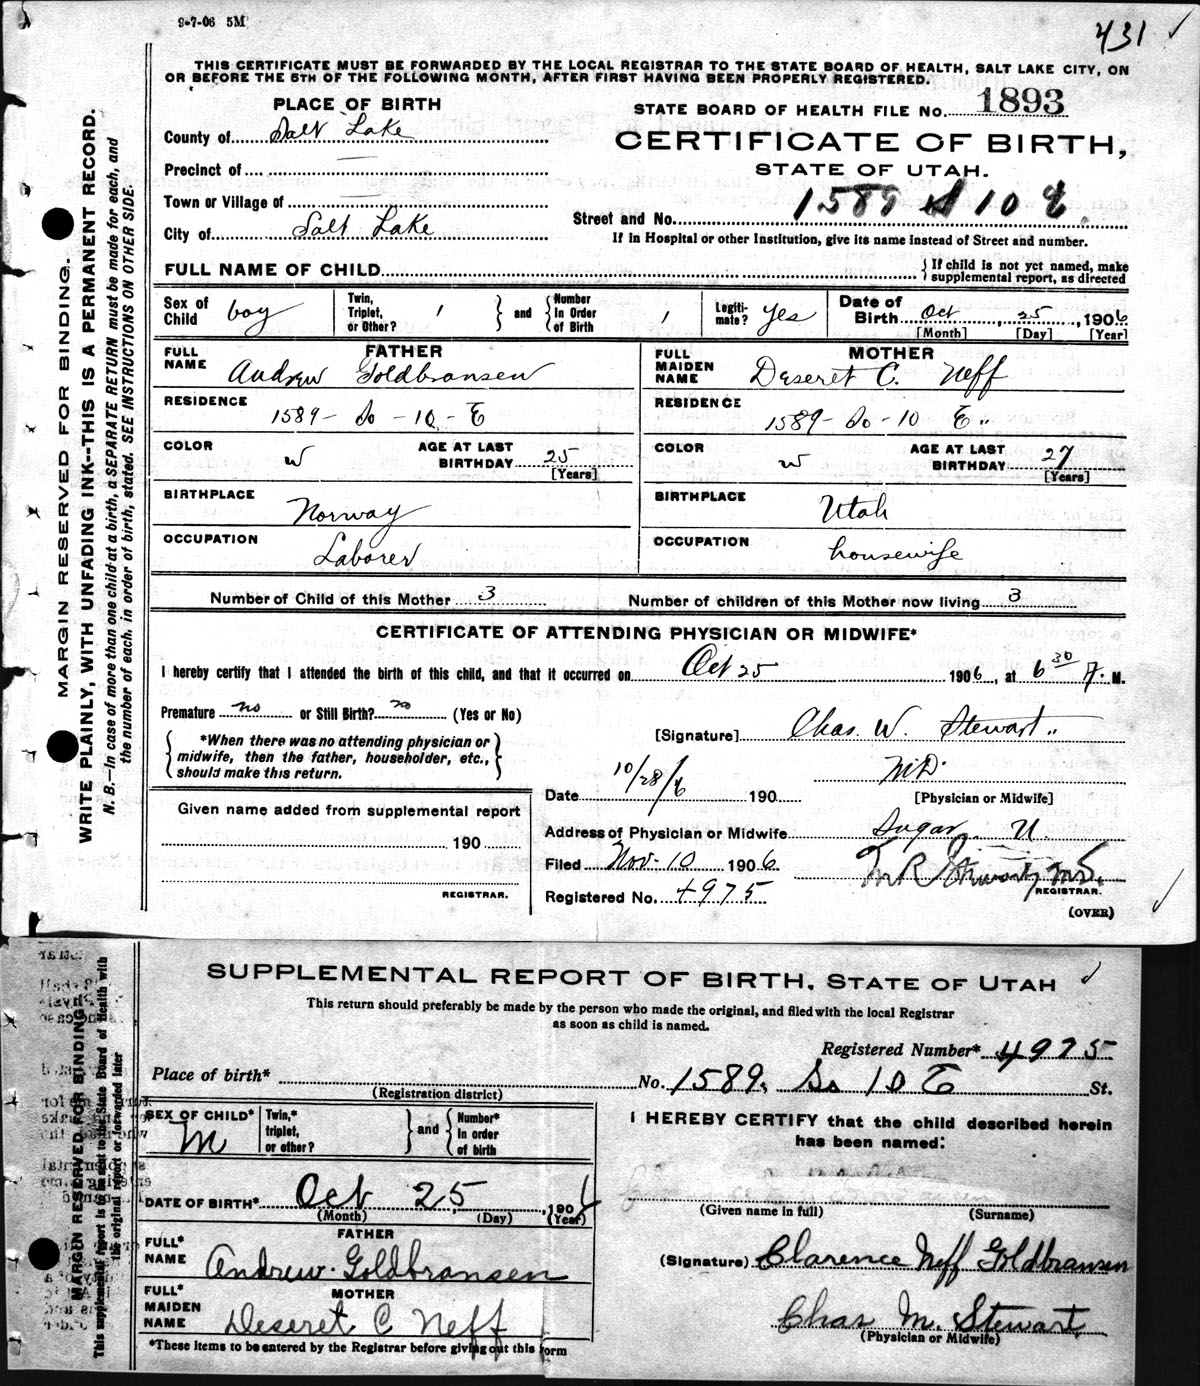 9-7-06 5M
431 ✓
THIS CERTIFICATE MUST BE FORWARDED BY THE LOCAL REGISTRAR TO THE STATE BOARD OF HEALTH, SALT LAKE CITY, ON
OR BEFORE THE 5TH OF THE FOLLOWING MONTH, AFTER FIRST HAVING BEEN PROPERLY REGISTERED.
PLACE OF BIRTH
STATE BOARD OF HEALTH FILE No. 1893
County of Salt Lake
CERTIFICATE OF BIRTH,
Precinct of —
STATE OF UTAH.
Town or Village of —
Street and No. 1589 S 10 E
City of Salt Lake
If in Hospital or other Institution, give its name instead of Street and number.
FULL NAME OF CHILD { If child is not yet named, make supplemental report, as directed
Sex of Child boy Twin, Triplet, or Other? 1 } and { Number In Order of Birth 1 Legiti-mate? Yes Date of Birth Oct, 25, 1906
[Month] [Day] [Year]
FATHER
FULL NAME Andrew Goldbransen
RESIDENCE
1589 - So - 10 - E
COLOR w AGE AT LAST BIRTHDAY 25
[Years]
BIRTHPLACE
Norway
OCCUPATION
Laborer
MOTHER
FULL MAIDEN NAME Deseret C. Neff
RESIDENCE
1589 - So - 10 E "
COLOR w AGE AT LAST BIRTHDAY 27
[Years]
BIRTHPLACE
Utah
OCCUPATION
housewife
Number of Child of this Mother 3 Number of children of this Mother now living 3
CERTIFICATE OF ATTENDING PHYSICIAN OR MIDWIFE*
I hereby certify that I attended the birth of this child, and that it occurred on Oct 25 1906, at 6 30 A. M.
Premature no or Still Birth? no (Yes or No)
{ *When there was no attending physician or midwife, then the father, householder, etc., should make this return. }
[Signature] Chas. W. Stewart
M.D.
[Physician or Midwife]
Date 10/28/6 190
Given name added from supplemental report
190
REGISTRAR.
Address of Physician or Midwife Sugar, U.
Filed Nov-10 1906
REGISTRAR.
Registered No. 4975
(OVER)
MARGIN RESERVED FOR BINDING.
WRITE PLAINLY, WITH UNFADING INK--THIS IS A PERMANENT RECORD.
N. B.—In case of more than one child at a birth, a SEPARATE RETURN must be made for each, and
the number of each, in order of birth, stated. SEE INSTRUCTIONS ON OTHER SIDE.
SUPPLEMENTAL REPORT OF BIRTH, STATE OF UTAH ✓
This return should preferably be made by the person who made the original, and filed with the local Registrar
as soon as child is named.
Registered Number* 4975
Place of birth* No. 1589, So 10 E St.
(Registration district)
SEX OF CHILD* M Twin,* triplet, or other? } and { Number* in order of birth
I HEREBY CERTIFY that the child described herein
has been named:
DATE OF BIRTH* Oct 25, 1906
(Month) (Day) (Year)
(Given name in full) (Surname)
FATHER
FULL* NAME Andrew Goldbransen
(Signature) Clarence Neff Goldbransen
MOTHER
FULL* MAIDEN NAME Deseret C Neff
Chas M. Stewart
(Physician or Midwife)
*These items to be entered by the Registrar before giving out this form
MARGIN RESERVED FOR BINDING
This supplemental report is to be sent to the State Board of Health with
the original report or forwarded later